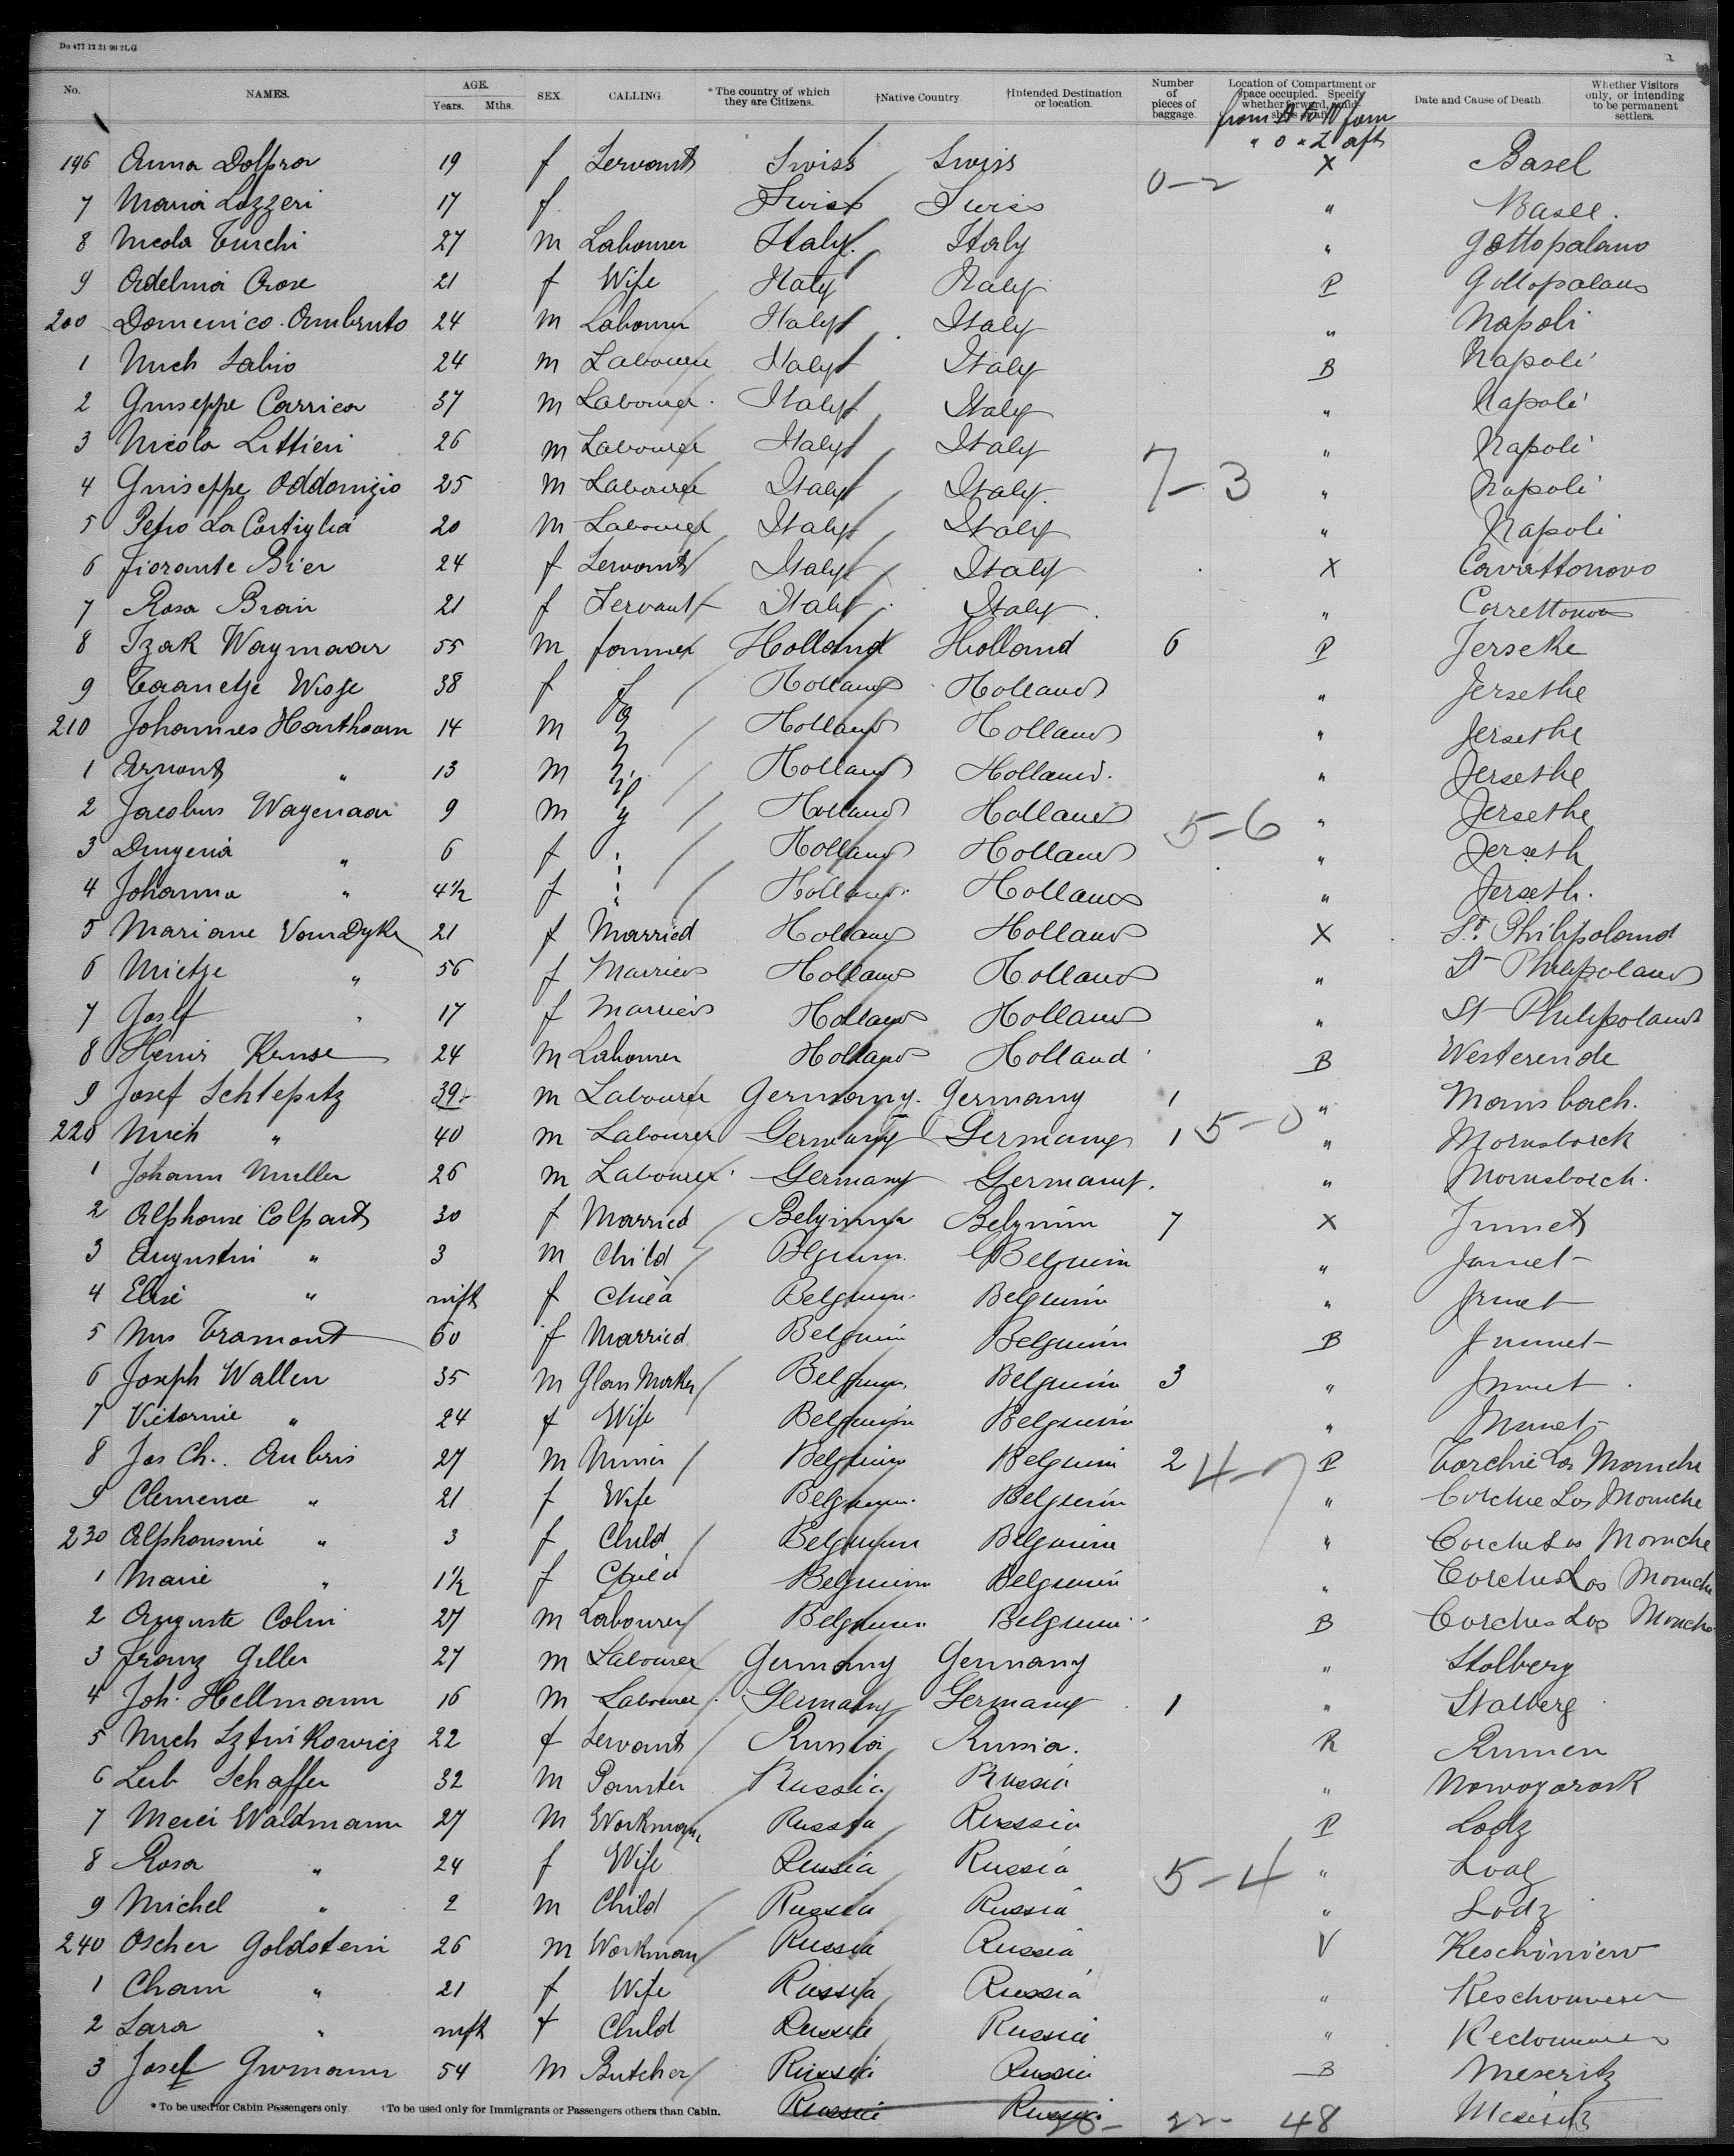 Do 477 12 31 90 2LG
No. NAMES. AGE. Years. Mths. SEX. CALLING. *The country of which they are Citizens. †Native Country. †Intended Destination or location. Number of pieces of baggage. Location of Compartment or space occupied. Specify whether forward, Date and Cause of Death. Whether Visitors only, or intending to be permanent settlers.
from to
" o " Z aft
196 Anna Dolfra 19 f Servant Swiss Swiss X Basel
0-2
7 Maria Lozzeri 17 f Swiss Swiss " Basel.
8 Nicola Turchi 27 m Labourer Italy. Italy " Gottopalano
9 Adelmia Crose 21 f Wife Italy Italy P
200 Domenico Ambruto 24 m Labourer Italy Italy " Napoli
1 Mich Sabio 24 m Labourer Italy Italy B Napoli
2 Guiseppe Carrica 37 m Labourer Italy Italy " Napoli
3 Nicola Littieri 26 m Labourer Italy Italy " Napoli
4 Guiseppe Oddonizio 25 m Labourer Italy Italy. 7-3 " Napoli
5 Petro La Cartiglia 20 m Labourer Italy Italy " Napoli
6 Fiorante Bier 24 f Servant Italy Italy X Cavattonovo
7 Rosa Brain 21 f Servant Italy Italy "
8 Izak Waymaar 55 m farmer Holland Holland 6 P Jerseke
9 Taanetje Wisse 38 f Holland Holland " Jersethe
210 Johannes Harthoorn 14 m Holland Holland " Jersethe
1 Arnout " 13 m Holland Holland. " Jersethe
2 Jacobus Wagenaar 9 m Holland Holland 5-6 " Jersethe
3 " 6 f Holland Holland " Jerseth
4 Johanna " 4½ f Holland Holland " Jerseth.
5 Mariane VanDyke 21 f Married Holland Holland X St. Philipoland
6 Mietje " 56 f Married Holland Holland " St Philipoland
7 " 17 f Married Holland Holland " St Philipoland
8 Henri Kruse 24 m Labourer Holland Holland B Westerende
9 Josef Schlepitz 39 m Labourer Germany. Germany 1 " Mansbach.
220 Mich " 40 m Labourer Germany Germany 1 5-0 "
1 Johann Muller 26 m Labourer Germany Germany. "
2 Alphonse Colpart 30 f Married Belgium Belgium 7 X Jumet
3 Augustin " 3 m Child Belgium Belguim " Jumet
4 Elise " f Child Belguim Belguim " Jumet
5 Mrs Tramont 60 f Married Belguim Belguim B Jumet
6 Joseph Wallen 35 m Glass Maker Belguim Belguim 3 " Jumet
7 Victornie " 24 f Wife Belguim Belguim " Jumet
8 Jos Ch. Aubris 27 m Miner Belguim Belguim 2 4-7 P
9 Clemence " 21 f Wife Belguim Belguim "
230 Alphonsine " 3 f Child Belguim Belguim "
1 Marie " 1½ f Child Belguim Belguim "
2 Auguste Colin 27 m Labourer Belguim Belguim B
3 Franz Geller 27 m Labourer Germany Germany " Stolberg
4 Joh. Hellmann 16 m Labourer Germany Germany 1 " Stolberg
5 Mich Sztnikowicz 22 f Servant Russia Russia. R
6 Leib Schaffer 32 m Painter Russia Russia "
7 Meier Waldmann 27 m Workman Russia Russia P Lodz
8 Rosa " 24 f Wife Russia Russia 5-4 " Lodz
9 Michel " 2 m Child Russia Russia " Lodz
240 Oscher Goldstein 26 m Workman Russia Russia V Keschiniew
1 Cham " 21 f Wife Russia Russia "
2 Sara " f Child Russia Russia "
3 Josef 54 m Butcher Russia Russia B Meseritz
* To be used for Cabin Passengers only. †To be used only for Immigrants or Passengers others than Cabin. Russia Russia 22- 48